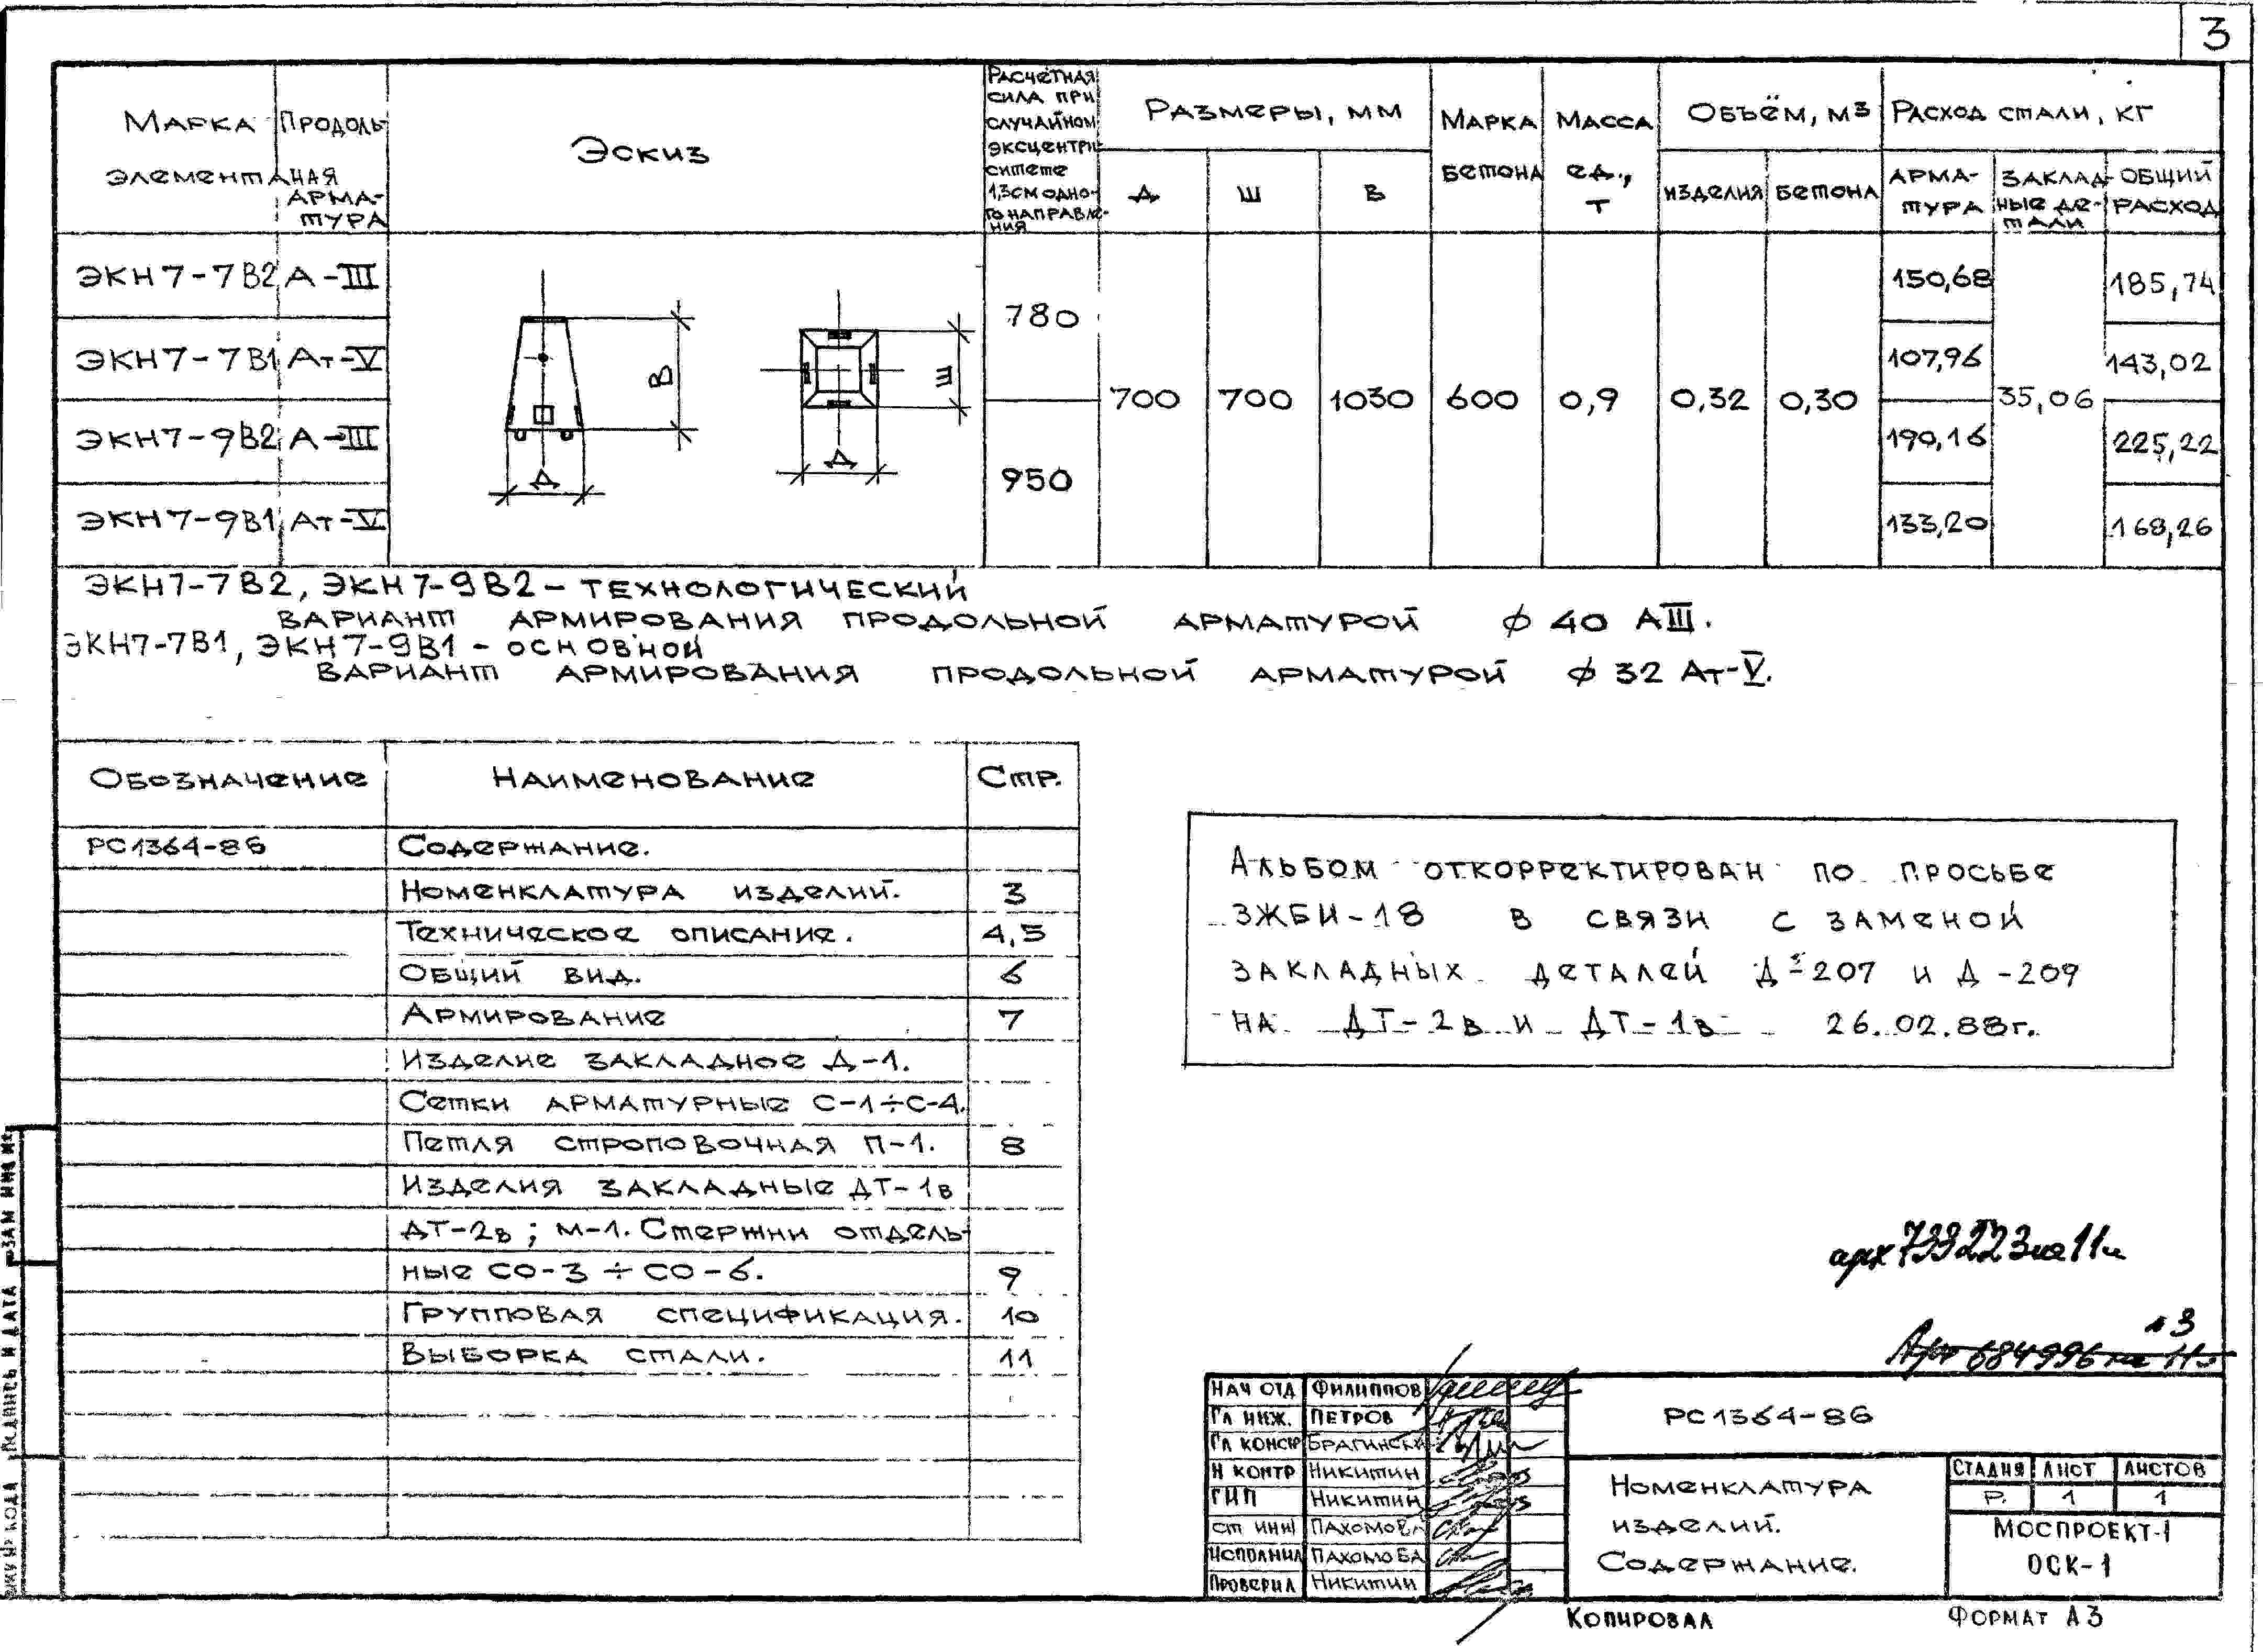 3
Марка элемента
Продольная арматура
Эскиз
Расчетная сила при случайном эксцентриситете 1,3см одного направления
Размеры, мм
Марка бетона
Масса ед., т
Объём, м3
Расход стали, кг
Д
Ш
В
изделия
бетона
Арматура
Закладные детали
Общий расход
ЭКН7-7В2 А-III
ЭКН7-7В1 Ат-V
ЭКН7-9В2 А-III
ЭКН7-9В1 Ат-V
В
Д
Ш
Д
780
950
700
700
1030
600
0,9
0,32
0,30
150,68
107,96
190,16
133,20
35,06
185,74
143,02
225,22
168,26
ЭКН7-7В2, ЭКН7-9В2 - технологический
вариант армирования продольной арматурой ϕ 40 АIII.
ЭКН7-7В1, ЭКН7-9В1 - основной
вариант армирования продольной арматурой ϕ 32 Ат-V.
Обозначение Наименование Стр.
РС1364-86 Содержание.
Номенклатура изделий. 3
Техническое описание. 4,5
Общий вид. 6
Армирование 7
Изделие закладное Д-1.
Сетки арматурные С-1÷С-4.
Петля строповочная П-1. 8
Изделия закладные ДТ-1в
ДТ-2в; М-1. Стержни отдель-
ные СО-3 ÷ СО-6. 9
Групповая спецификация. 10
Выборка стали. 11
Альбом откорректирован по просьбе
ЗЖБИ-18 в связи с заменой
закладных деталей Д-207 и Д-209
на ДТ-2в и ДТ-1в 26.02.88г.
арх 733223 на 11л
л 3
Арх 684996 на 11л
Нач отд Филиппов
Гл инж. Петров
Гл констр Брагинск
Н контр Никитин
ГИП Никитин
ст инж Пахомова
Исполнил Пахомова
Проверил Никитин
РС1364-86
Номенклатура
изделий.
Содержание.
Стадия Лист Листов
Р. 1 1
МОСПРОЕКТ-1
ОСК-1
Копировал
Формат А3
Подпись и дата
Зам инв №